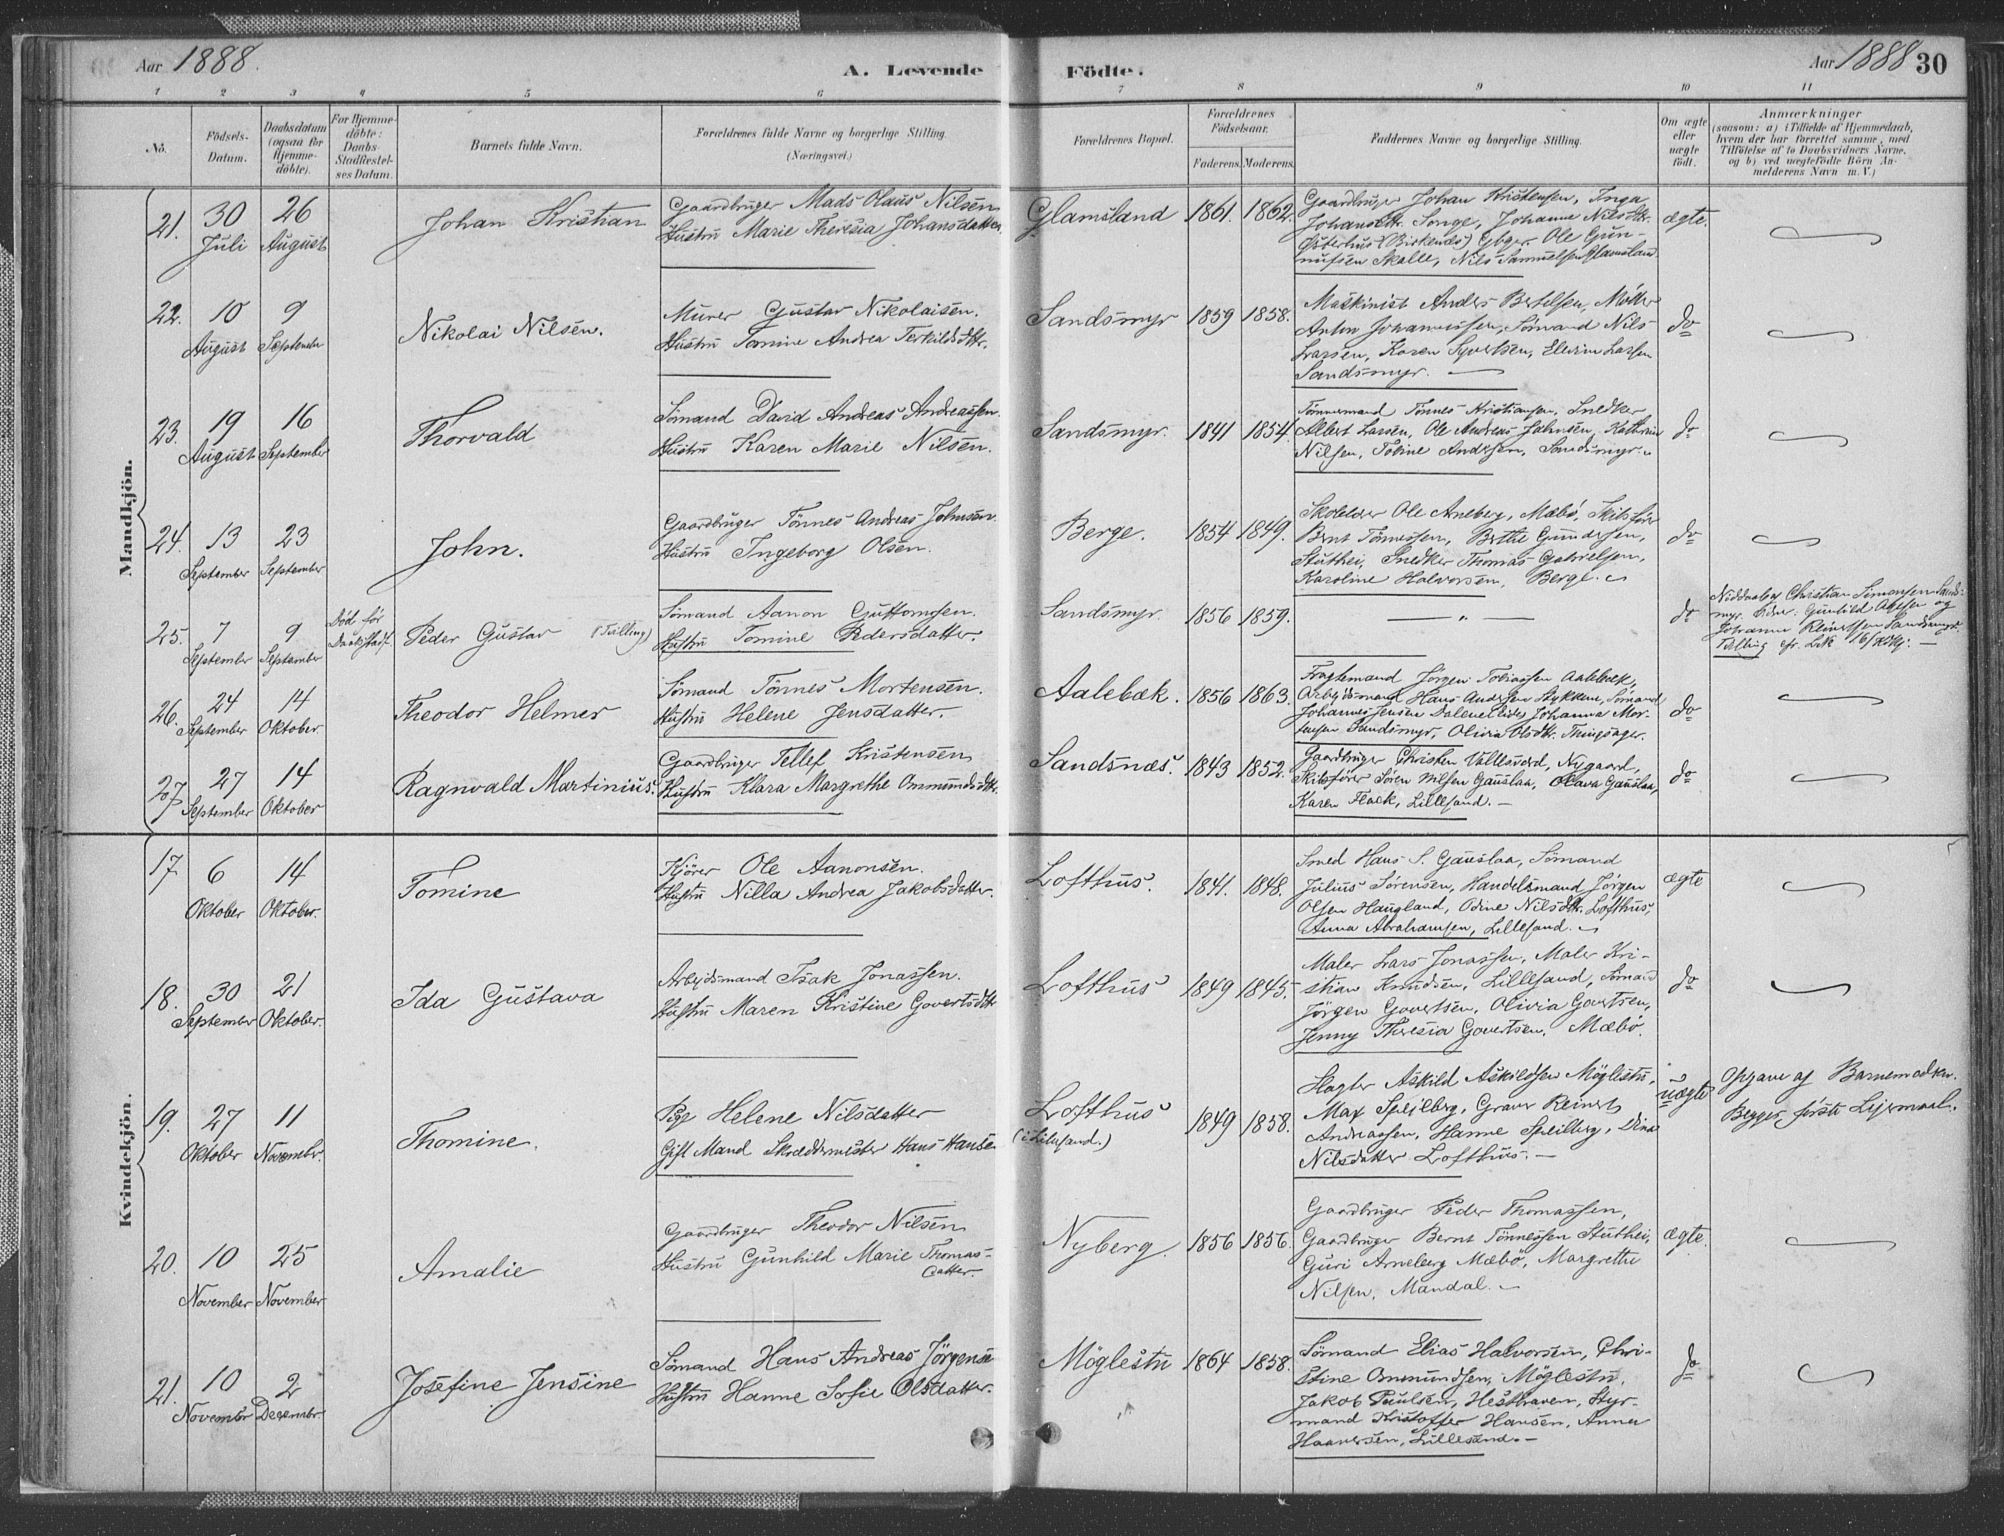 Aar 1888.
A. Levende
Födte.
Aar 1888 30
1 2 3 4 5 6 7 8 9 10 11
No.
Födsels-
Datum.
Daabsdatum
(ogsaa for
Hjemme-
döbte).
For Hjemme-
döbte:
Daabs-
Stadfæstel-
ses Datum.
Barnets fulde Navn.
Forældrenes fulde Navne og borgerlige Stilling.
(Næringsvei.)
Forældrenes Bopæl.
Forældrenes
Födselsaar.
Faderens. Moderens.
Faddernes Navne og borgerlige Stilling.
Om ægte
eller
uægte
födt.
Anmærkninger
(saasom: a) i Tilfælde af Hjemmedaab,
hvem der har forrettet samme, med
Tilföielse af to Daabsvidners Navne,
og b) ved uægtefödte Börn An-
melderens Navn m. V.)
Mandkjön.
21.
30
Juli
26
August
Johan Kristian
Gaardbruger Mads Olaus Nilsen
Hustru Marie Theresia Johansdatter.
Glamsland
1861. 1862.
Gaardbruger Johan Kristensen, Inga
Johansdtr. Songe, Johanne Nilsdtr.
Østerhus (Birkenes) Gbgr. Ole Gun-
nufsen Skalle, Nils Samuelsen Glamsland
ægte.
22.
10
August
9
September
Nikolai Nilsen.
Murer Gustav Nikolaisen.
Hustru Tomine Andrea Terkildsdtr.
Sandsmyr
1859 1858.
Maskinist Anders Bertelsen, Møller
Anton Johannessen, Sömand Nils
Larsen, Karen Syvertsen, Elevine Larsen
Sandsmyr.
do
23.
19
August
16
September
Thorvald
Sömand David Andreas Andreassen.
Hustru Karen Marie Nilsen.
Sandsmyr.
1841 1854
Tömmermand Tönnes Kristiansen, Snedker
Albert Larsen, Ole Andreas Jahnsen, Kathrine
Nilsen, Tobine Andersen, Sandsmyr.
do
24.
13
September
23
September
John.
Gaardbruger Tönnes Andreas Johnsen.
Hustru Ingeborg Olsen.
Berge.
1854 1849.
Skolelærer Ole Aneberg, Mæbö, Skibsförer
Bernt Tönnessen, Berthe Gundersen,
Stuthei, Snedker Thomas Gabrielsen,
Karoline Halvorsen, Berge.
do
25.
7
September
9
September
Död för
Daabsstadf.
Peder Gustav (Tvilling)
Sömand Aanon Guttormsen.
Hustru Tomine Pedersdatter.
Sandsmyr.
1856 1859.
do
Nöddaab af Christian Simonsen Sands-
myr. Vidner: Gunhild Olsen og
Johanne Reinertsen Sandsmyr.
Tvilling
26.
24
September
14
Oktober
Theodor Helmer
Sömand Tönnes Mortensen.
Hustru Helene Jensdatter.
Aalebæk.
1856 1863.
Fragtemand Jörgen Tobiassen Aalebæk,
Arbeidsmand Hans Andersen Lykken, Sömand
Johannes Jensen Dalenelides, Johanna Mor-
tensen Sandsmyr, Olivia Olsdtr. Thingsager.
do
27.
27
September
14
Oktober
Ragnvald Martinius.
Gaardbruger Tellef Kristensen
Hustru Klara Margrethe Ommundsdtr.
Sandsnæs.
1843 1852.
Gaardbruger Christen Vallesverd, Nygaard,
Skibsförer Sören Nilsen Gauslaa, Olava Gauslaa,
Karen Flack, Lillesand.
do
Kvindekjön.
17
6
Oktober
14
Oktober.
Tomine
Kjörer Ole Aanonsen.
Hustru Nilla Andrea Jakobsdatter.
Lofthus.
1841. 1848.
Smed Hans S. Gauslaa, Sömand
Julius Sörensen, Handelsmand Jörgen
Olsen Haugland, Odine Nilsdtr. Lofthus,
Anna Abrahamsen, Lillesand.
ægte
18.
30
September
21
Oktober.
Ida Gustava
Arbejdsmand Isak Jonassen.
Hustru Maren Kristine Govertsdtr
Lofthus
1849 1845.
Maler Lars Jonassen, Maler Kri-
stian Knudsen, Lillesand, Sömand
Jörgen Govertsen, Olivia Govertsen,
Jenny Theresia Govertsen, Mæbö.
do
19.
27
Oktober
11
Novembr.
Thomine.
Pige Helene Nilsdatter
Gift Mand Skræddermester Hans Hansen
Lofthus
(i Lillesand.)
1849 1858.
Slagter Askild Askildsen Möglestu,
Max Speilberg, Graver Reinert
Andreassen, Hanne Speilberg, Dina
Nilsdatter Lofthus.
uægte
Opgave af Barnemoderen.
Begges förste Lejermaal.
20.
10
November
25
November
Amalie
Gaardbruger Theodor Nilsen
Hustru Gunhild Marie Thomas-
datter.
Nyberg.
1856 1856.
Gaardbruger Peder Thomassen,
Gaardbruger Bernt Tönnessen Stuthei,
Guri Arneberg Mæbö, Margrethe
Nilsen, Mandal.
ægte.
21.
10
Novembr
2
Decembr.
Josefine Jensine
Sömand Hans Andreas Jörgensen
Hustru Hanne Sofie Olsdatter.
Möglestu
1864 1858.
Sömand Elias Halvorsen, Chri-
stine Ommundsen, Möglestu,
Jakob Paulsen, Hesthaven, Styr-
mand Kristoffer Hansen, Anna
Haaversen, Lillesand.
do